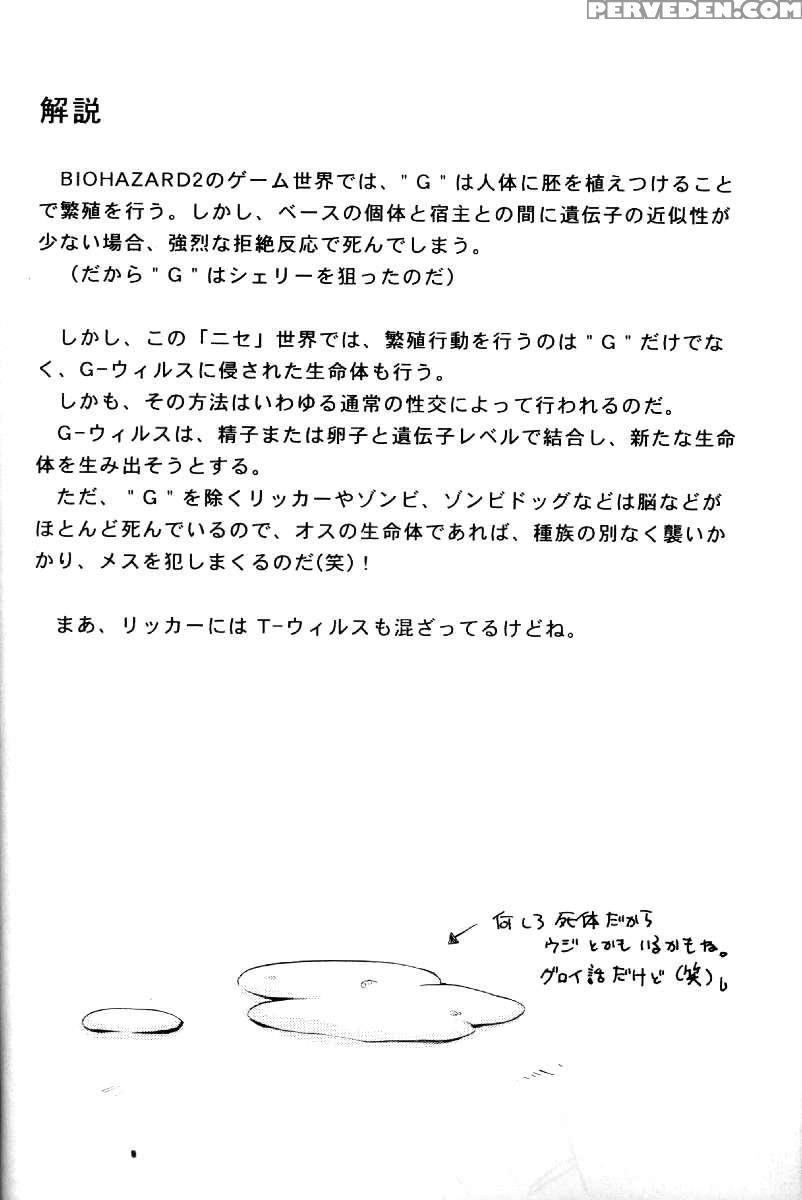 PERVEDEN.COM
解説
BIOHAZARD2のゲーム世界では、"G"は人体に胚を植えつけること
で繁殖を行う。しかし、ベースの個体と宿主との間に遺伝子の近似性が
少ない場合、強烈な拒絶反応で死んでしまう。
（だから"G"はシェリーを狙ったのだ）
しかし、この「ニセ」世界では、繁殖行動を行うのは"G"だけでな
く、G-ウィルスに侵された生命体も行う。
しかも、その方法はいわゆる通常の性交によって行われるのだ。
G-ウィルスは、精子または卵子と遺伝子レベルで結合し、新たな生命
体を生み出そうとする。
ただ、"G"を除くリッカーやゾンビ、ゾンビドッグなどは脳などが
ほとんど死んでいるので、オスの生命体であれば、種族の別なく襲いか
かり、メスを犯しまくるのだ(笑)！
まあ、リッカーには T-ウィルスも混ざってるけどね。
何しろ死体だから
ウジとかもいるかもね。
グロイ話だけど（笑）。